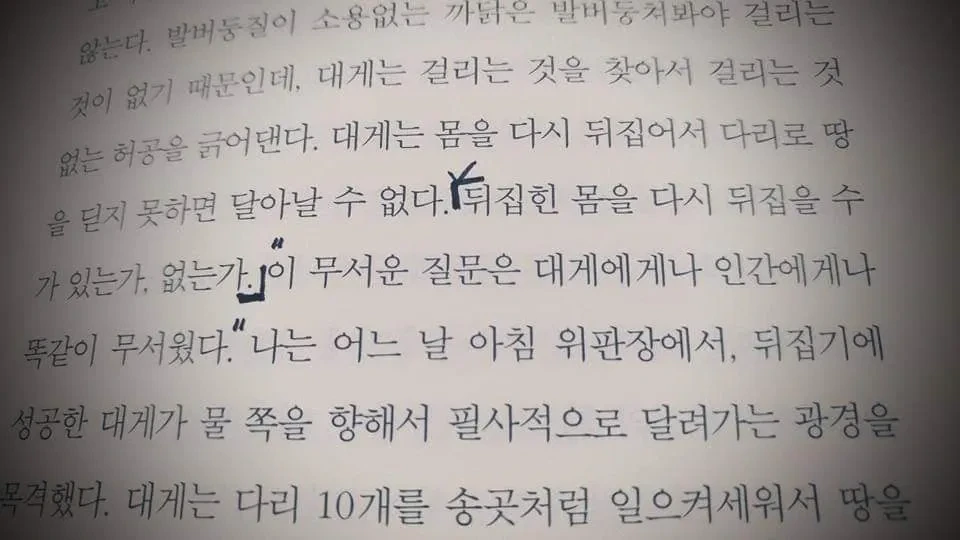 않는다. 발버둥질이 소용없는 까닭은 발버둥쳐봐야 걸리는
것이 없기 때문인데, 대게는 걸리는 것을 찾아서 걸리는 것
없는 허공을 긁어댄다. 대게는 몸을 다시 뒤집어서 다리로 땅
을 딛지 못하면 달아날 수 없다. 뒤집힌 몸을 다시 뒤집을 수
가 있는가, 없는가. "이 무서운 질문은 대게에게나 인간에게나
똑같이 무서웠다." 나는 어느 날 아침 위판장에서, 뒤집기에
성공한 대게가 물 쪽을 향해서 필사적으로 달려가는 광경을
목격했다. 대게는 다리 10개를 송곳처럼 일으켜세워서 땅을